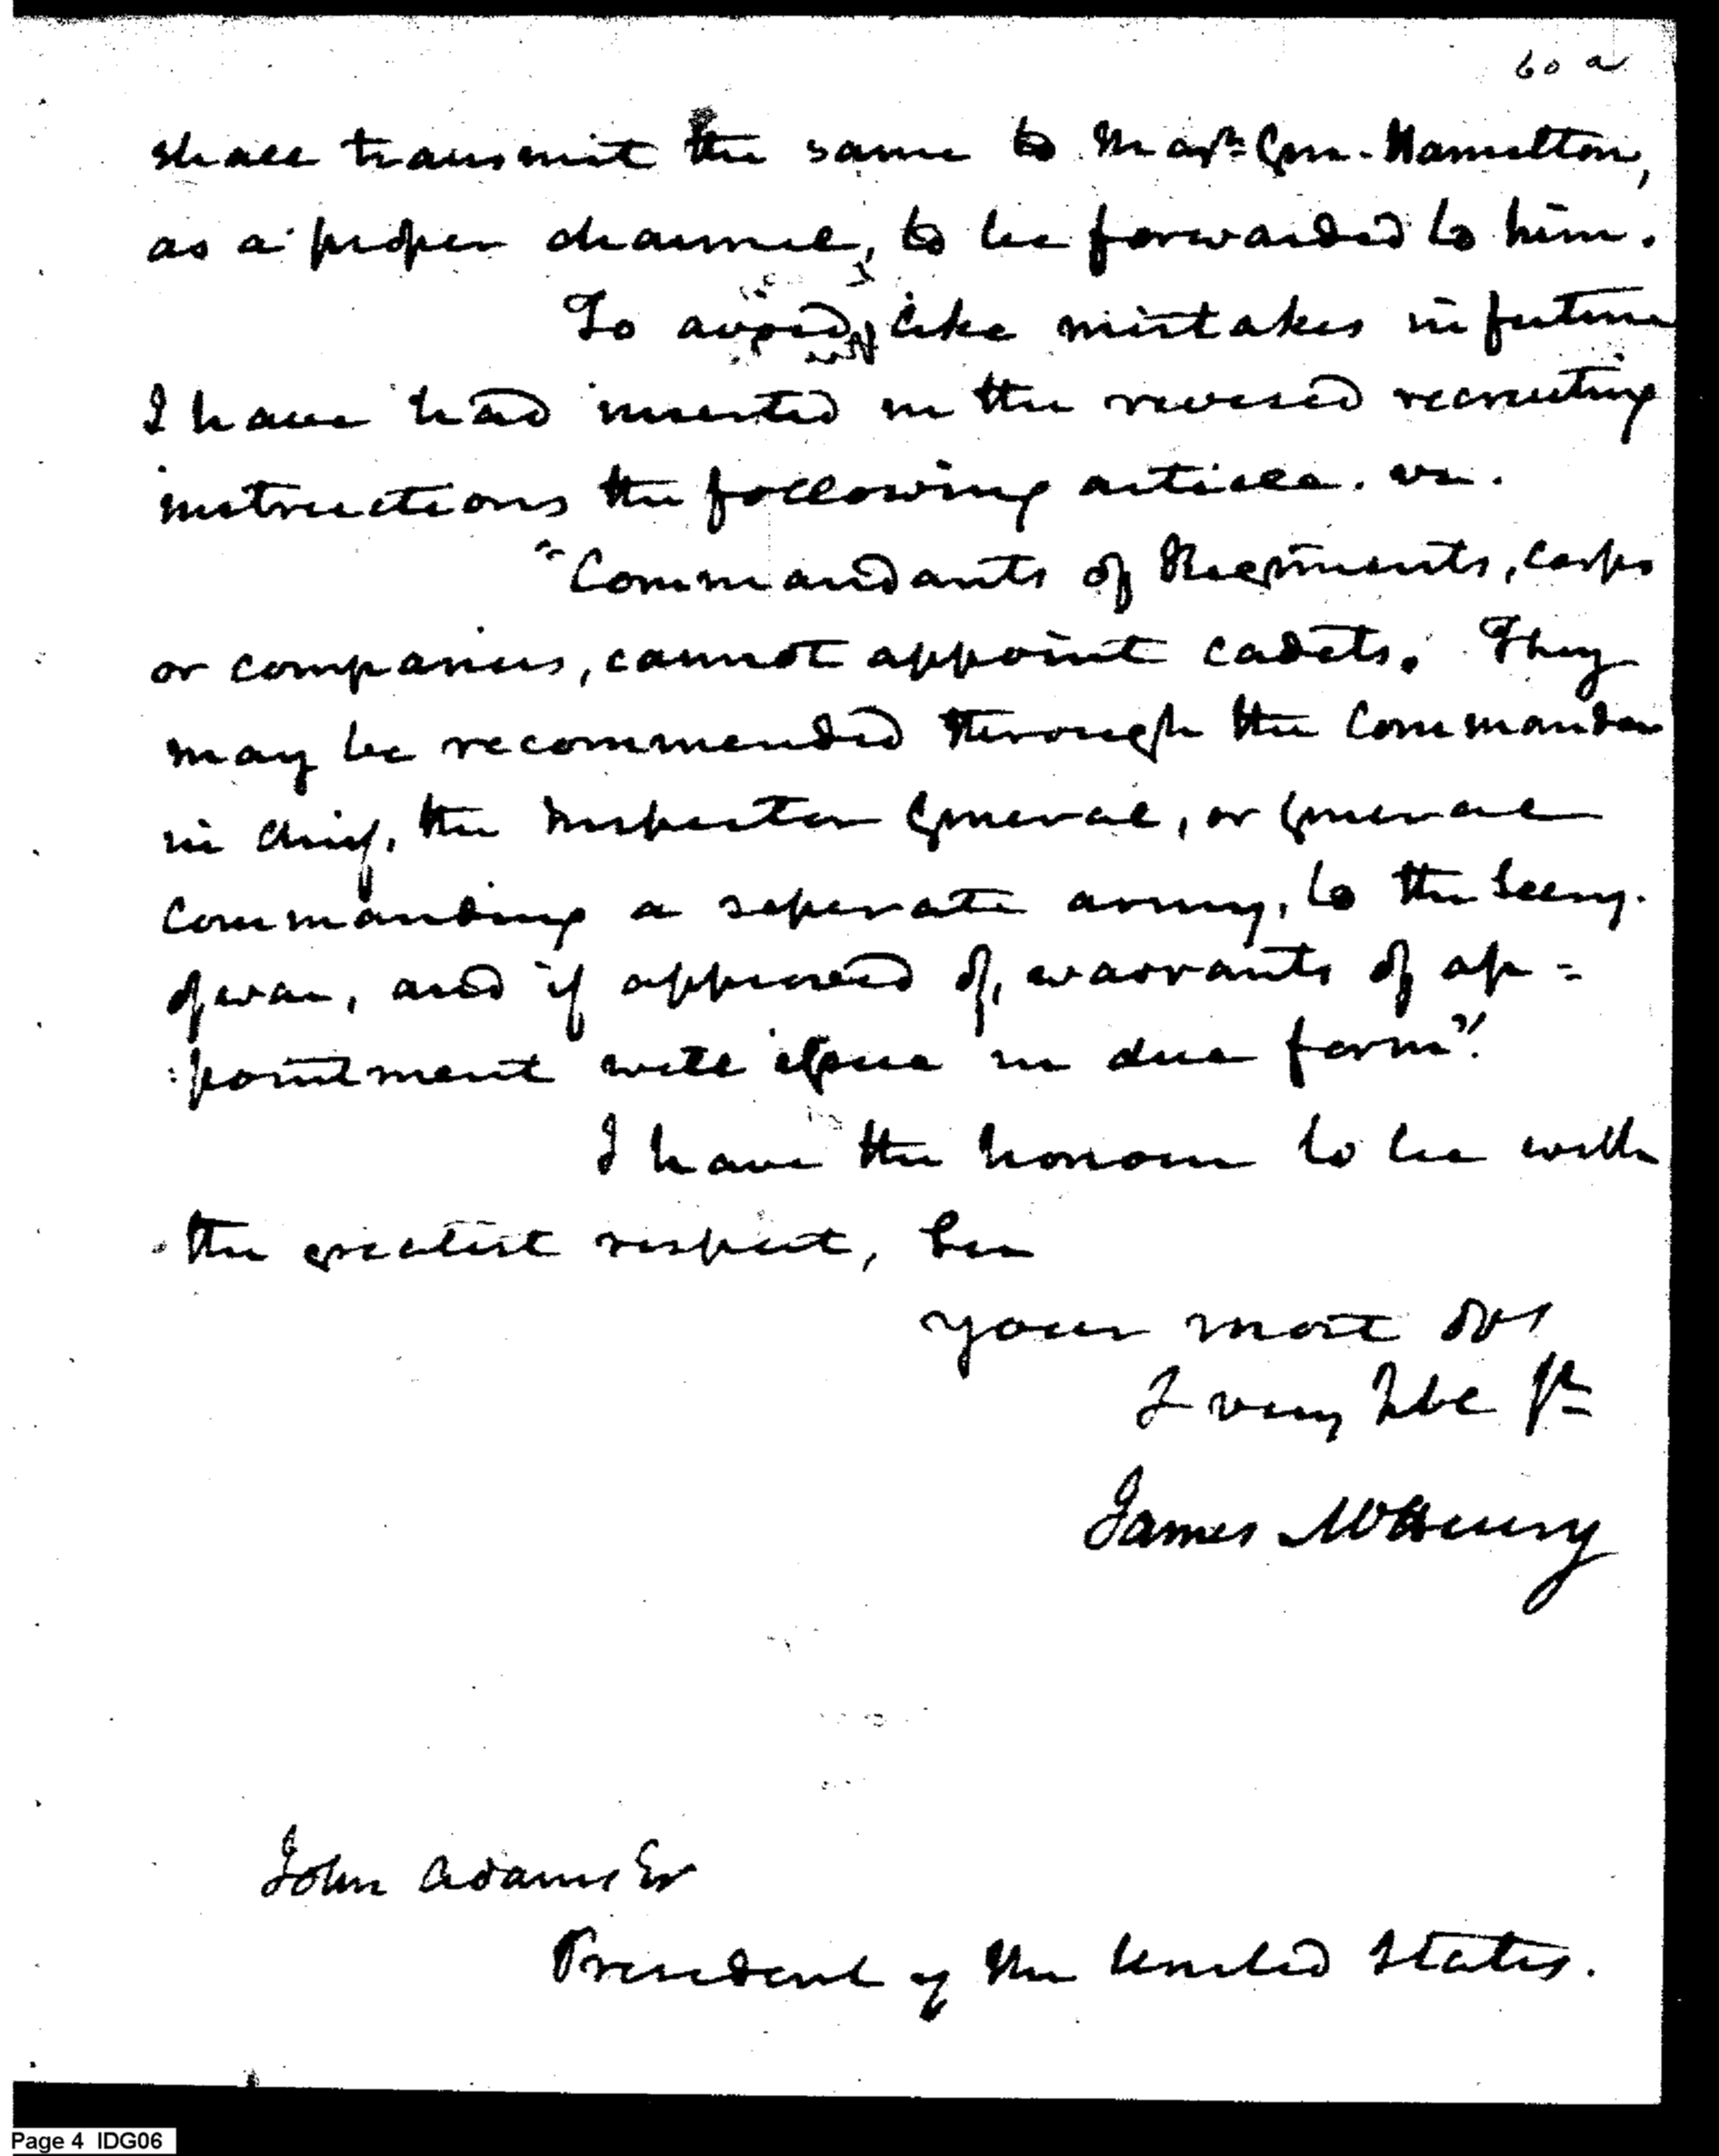 60 a
shall transmit the same to Majr. Gen. Hamilton,
as a proper channel, to be forwarded to him.
To avoid, like mistakes in future
I have had inserted in the revised recruiting
instructions the following article. viz.
"Commandants of Regiments, corps
or companies, cannot appoint cadets. They
may be recommended through the Commander
in chief, the Inspector General, or general
commanding a seperate army, to the Secy.
of war, and if approved of, warrants of ap=
=pointment will issue in due form".
I have the honour to be with
the greatest respect, Sir
your most obt
& very hble St
James McHenry
John Adams Esr
President of the United States.
Page 4 IDG06